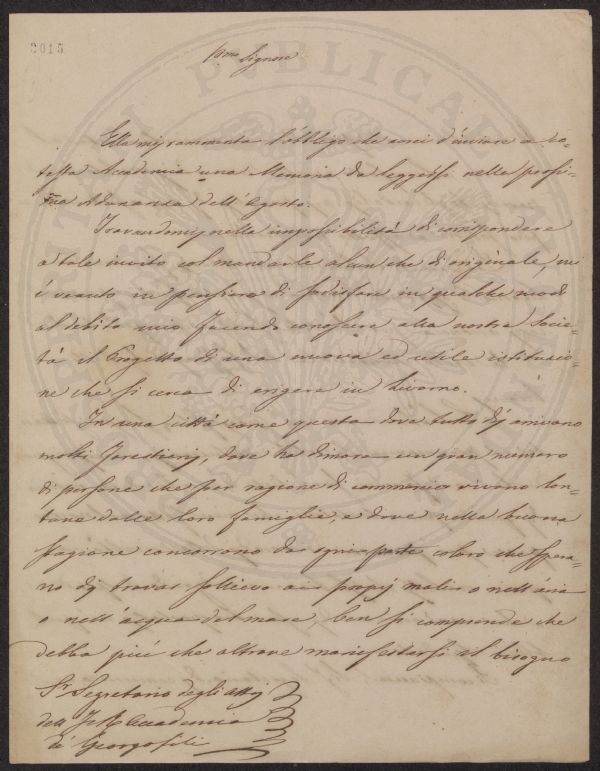 2015
Illmo Signore
Ella mi rammenta l'obbligo che avrei d'inviare a co-
testa Accademia una Memoria da leggersi nella prossi-
ma Adunanza dell'Agosto.
Trovandomi nella impossibilità di corrispondere
a tale invito col mandarle alcun che di originale, mi
è venuto in pensiero di sodisfare in qualche modo
al debito mio facendo conoscere alla nostra Socie-
tà il Progetto di una nuova ed utile istituzio-
ne che si cerca di erigere in Livorno.
In una città come questa dove tutto dì arrivano
molti forestieri, dove ha dimora un gran numero
di persone che per ragione di commercio vivono lon-
tane dalle loro famiglie, e dove nella buona
stagione concorrono da ogni parte coloro che spera-
no di trovar sollievo ai proprj mali o nell'aria
o nell'acqua del mare ben si comprende che
debba più che altrove manifestarsi il bisogno
Sr. Segretario degli Attij
dell' I e R Accademia
de' Georgofili